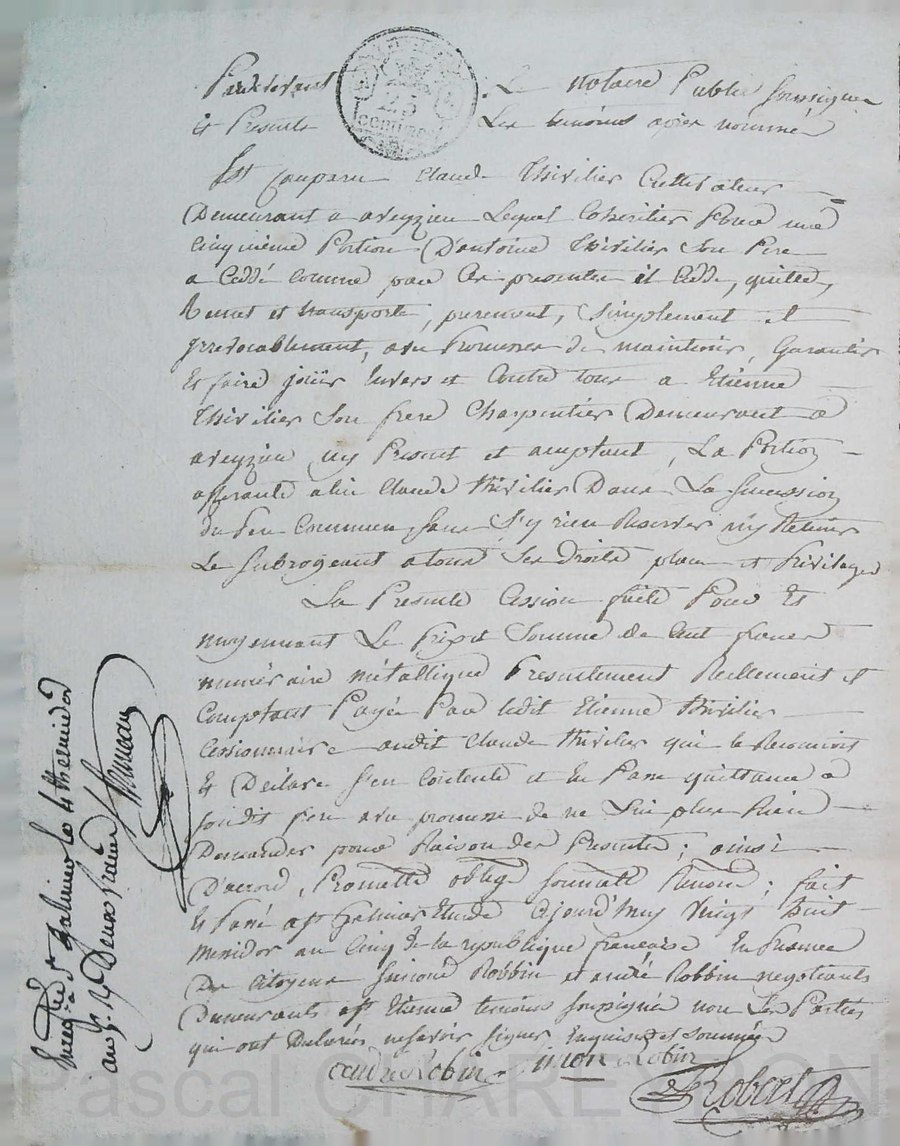 Pardevant Le notaire Public soussigné
et Presents Les temoins apres nommés
25
CENTIMES
Est Comparu Claude Thivilier Cultivateur
Demeurant a aveyzieu Lequel Coheritier Pour une
Cinquieme Portion D'antoine Thivilier Son Pere
a Ceddé comme par Ces presentes il Cedde, quitte,
Remet et transporte, purement, Simplement et
Irrevocablement, avec Promesses de maintenir, Garantir
Et faire joüir Envers et Contre tous a Etienne
Thivilier Son frere Charpentier Demeurant a
aveyzieu icy Present et acceptant, La Portion
afferante a lui Claude Thivilier Dans La Succession
du Pere Commun, Sans S'y rien Reserver ny Retenir
Le Subrogeant a tous Ses Droits place et Privileges
La Presente Cession faite Pour Et
moyennant Le Prix et Somme de Cent francs
numéraire métallique Presentement Reellement et
Comptant Payée Par ledit Etienne Thivilier
Cessionnaire audit Claude Thivilier qui la Reconnoit
Et Declare S'en Contente et En Passe quittance a
Sondit frere avec promesse de ne Lui plus Rien
Demander pour Raison des Presentes; ainsi
D'accord, Promette oblige Soumette Renonce; fait
Et Passé a St Galmier Etude Ajourd'huy Vingt huit
messidor an Cinq De la republique francaise En Presence
De Citoyens Simond Robbin et andré Robbin negotiants
Demeurants a St Etienne temoins Soussignés non Les Parties
qui ont Declarés ne savoir Signer Enquises et Sommées
andre Robin Simon Robin
Robert
Enregistré a St Galmier le 4 thermidor
an 5. R Deux francs
Pascal CHARE RON